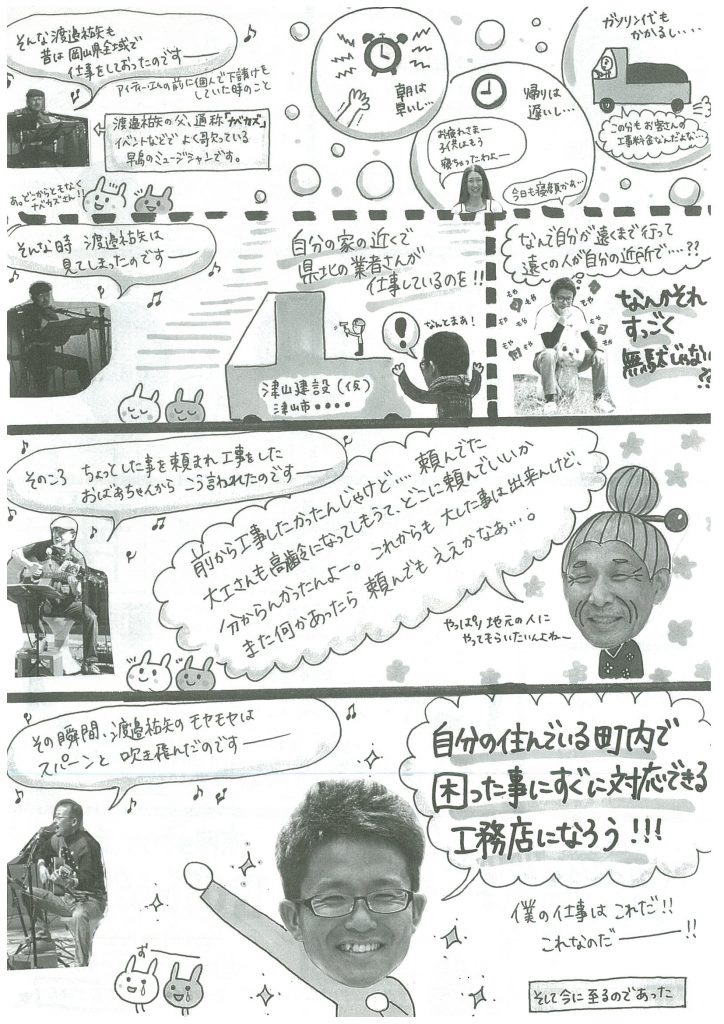 そんな渡邉祐矢も
昔は岡山県全域で
仕事をしておったのです――
アイ・ティー・エムの前に個人で下請けを
していた時のこと
渡邉祐矢の父、通称「ナベカズ」
イベントなどで よく歌っている
早島のミュージシャンです。
あっどーからともなく
ナベカズさん!!
朝は
早いし…
お疲れさまー
子供はもう
寝ちゃったわよー
帰りは
遅いし…
今日も寝顔かぁ…
ガソリン代も
かかるし・・・・
この分も お客さんの
工事料金なんだよな…
そんな時 渡邉祐矢は
見てしまったのです――
自分の家の近くで
県北の業者さんが
仕事しているのを!!
なんとまぁ!
津山建設(仮)
津山市・・・・
なんで自分が遠くまで行って
遠くの人が自分の近所で・・・・??
モヤ
モヤ
モヤ
モヤ
なんかそれ
すっごく
無駄じゃない
??
そのころ ちょっとした事を頼まれ工事をした
おばあちゃんから こう言われたのです――
前から工事したかったんじゃけど・・・・ 頼んでた
大工さんも高齢になってしもうて、どこに頼んでいいか
分からんかったんよー。 これからも 大した事は出来んけど、
また何かあったら 頼んでも ええかなあ・・・。
やっぱり 地元の人に
やってもらいたいんよね～
その瞬間、渡邉祐矢のモヤモヤは
スパーンと 吹き飛んだのです――
自分の住んでいる町内で
困った事にすぐに対応できる
工務店になろう!!!
僕の仕事は これだ!!
これなのだ――!!
お――
そして今に至るのであった